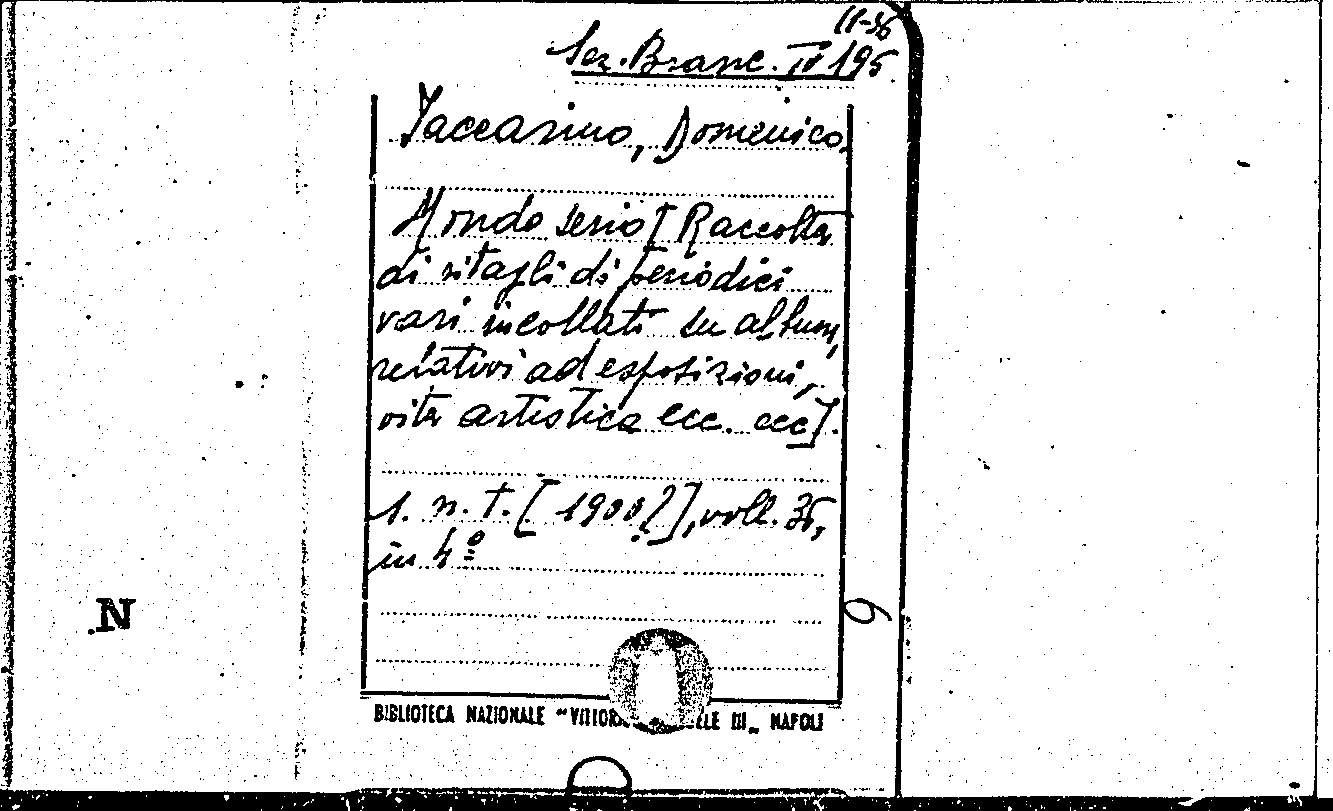 (1-36
Sez. Branc. IV 195.
Jaccarino, Domenico.
Mondo serio [Raccolta
di ritagli di periodici
vari incollati su album,
relativi ad esposizioni,
vita artistica ecc. ecc].
s. n. t. [1900?], voll. 36,
in 4º
6
N
BIBLIOTECA NAZIONALE "VITTORIO ELE III„ NAPOLI